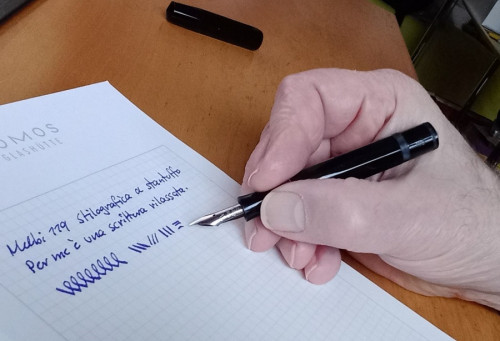 OMOS
GLASHÜTTE
Melbi 119 Stilografica a stantuffo
Per me è una scrittura rilassata.